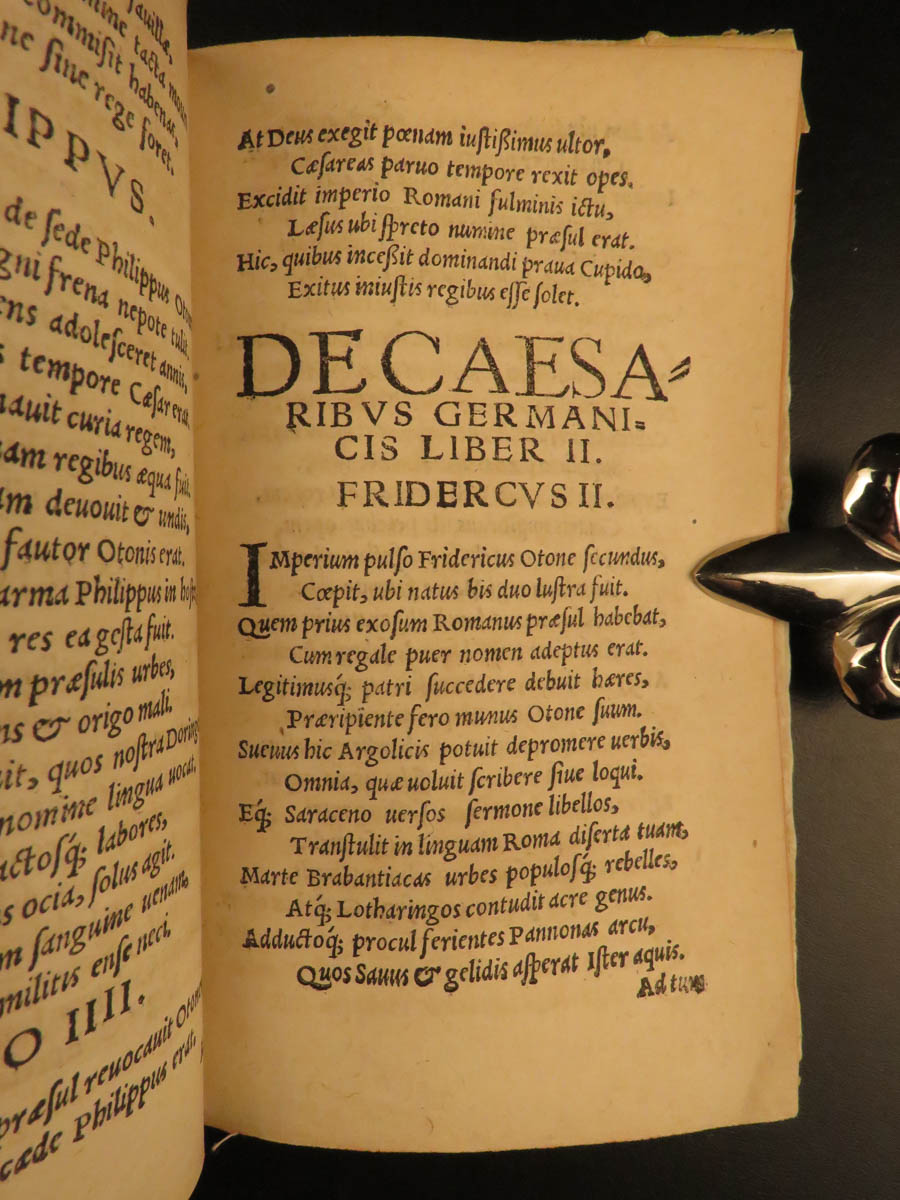 fauilla,
mine tacta
commisit habenas,
ne sine rege foret.
IPPVS.
de sede Philippus
gni frena nepote tulit.
ens adolesceret annis,
s tempore Cæsar erat.
nauit curia regem,
sam regibus æqua fuit.
um deuouit & undis,
fautor Otonis erat.
arma Philippus in
res ea gesta fuit.
m præsulis urbes,
ns & origo mali.
it, quos nostra
nomine lingua uocat.
uctosq́; labores,
s ocia, solus agit.
m sanguine uenam,
militis ense neci.
O IIII.
præsul reuocauit
cæde Philippus erat.
At Deus exegit pœnam iustißimus ultor,
Cæsareas paruo tempore rexit opes.
Excidit imperio Romani fulminis ictu,
Læsus ubi spreto numine præsul erat.
Hic, quibus inceßit dominandi praua Cupido,
Exitus iniustis regibus esse solet.
DE CAESA-
RIBVS GERMANI-
CIS LIBER II.
FRIDERCVS II.
IMperium pulso Fridericus Otone secundus,
Cœpit, ubi natus bis duo lustra fuit.
Quem prius exosum Romanus præsul habebat,
Cum regale puer nomen adeptus erat.
Legitimusq́; patri succedere debuit hæres,
Præripiente fero munus Otone suum.
Sueuus hic Argolicis potuit depromere uerbis,
Omnia, quæ uoluit scribere siue loqui.
Eq́; Saraceno uersos sermone libellos,
Transtulit in linguam Roma diserta tuam,
Marte Brabantiacas urbes populosq́; rebelles,
Atq́; Lotharingos contudit acre genus.
Adductoq́; procul ferientes Pannonas arcu,
Quos Sauus & gelidis asperat Ister aquis.
Ad tum